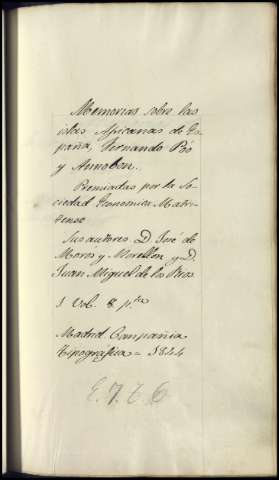 Memorias sobre las
islas Africanas de Es-
paña, Fernando Póo
y Annobon.
Premiadas por la So-
ciedad Economica Matri-
tense
Sus autores D. José de
Moros y Morellon y D.
Juan Miguel de los Rios
1 Vol. 8º
Madrid Compañia
Tipográfica = 1844